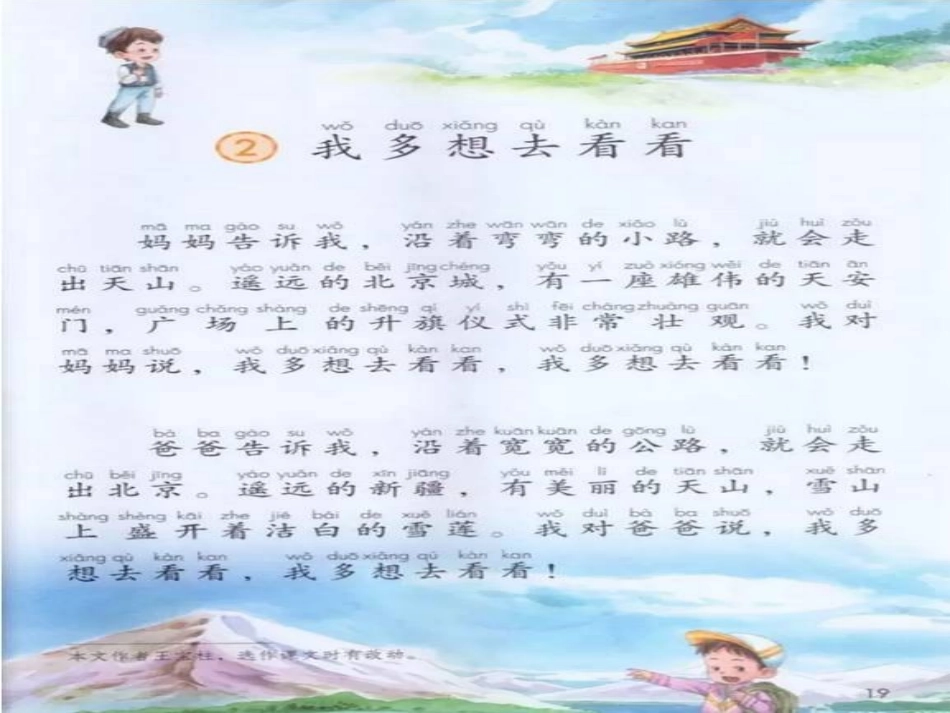 wǒ duō xiǎng qù kàn kan
2 我多想去看看
mā ma gào su wǒ yán zhe wān wān de xiǎo lù jiù huì zǒu
妈妈告诉我，沿着弯弯的小路，就会走
chū tiān shān yáo yuǎn de běi jīng chéng yǒu yí zuò xióng wěi de tiān ān
出天山。遥远的北京城，有一座雄伟的天安
mén guǎng chǎng shàng de shēng qí yí shì fēi cháng zhuàng guān wǒ duì
门，广场上的升旗仪式非常壮观。我对
mā ma shuō wǒ duō xiǎng qù kàn kan wǒ duō xiǎng qù kàn kan
妈妈说，我多想去看看，我多想去看看！
bà ba gào su wǒ yán zhe kuān kuān de gōng lù jiù huì zǒu
爸爸告诉我，沿着宽宽的公路，就会走
chū běi jīng yáo yuǎn de xīn jiāng yǒu měi lì de tiān shān xuě shān
出北京。遥远的新疆，有美丽的天山，雪山
shàng shèng kāi zhe jié bái de xuě lián wǒ duì bà ba shuō wǒ duō
上盛开着洁白的雪莲。我对爸爸说，我多
xiǎng qù kàn kan wǒ duō xiǎng qù kàn kan
想去看看，我多想去看看！
本文作者王宝柱，选作课文时有改动。
19